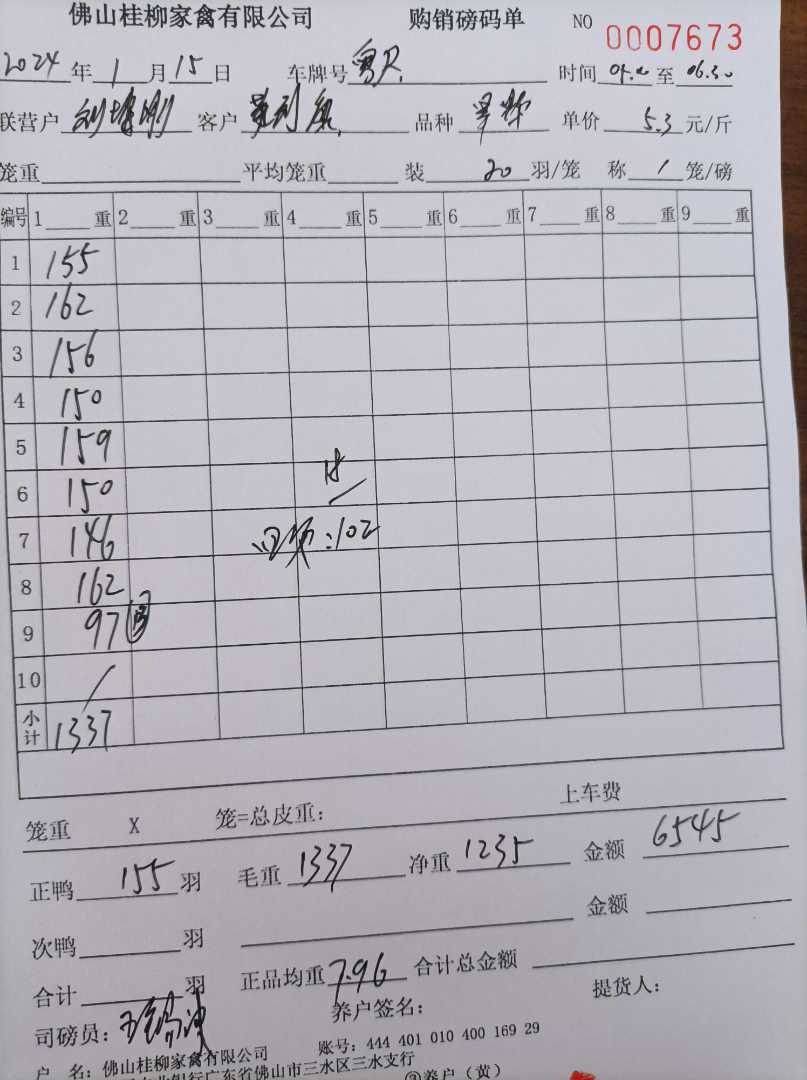 佛山桂柳家禽有限公司 购销磅码单 NO 0007673
2024年1月15日 车牌号 粤R. 时间 至 06.30
联营户 客户 品种 单价 5.3 元/斤
笼重 平均笼重 装 20 羽/笼 称 1 笼/磅
编号 1 重 2 重 3 重 4 重 5 重 6 重 7 重 8 重 9 重
1 155
2 162
3 156
4 150
5 159
6 150
7 146
8 162
9 97
:102
10 /
小计 1337
上车费
笼重 X 笼=总皮重:
正鸭 155 羽 毛重 1337 净重 1235 金额 6545
次鸭 羽 金额
合计 羽 正品均重 7.96 合计总金额
司磅员: 养户签名: 提货人:
户 名: 佛山桂柳家禽有限公司 账号: 444 401 010 400 169 29
银行广东省佛山市三水区三水支行
③养户(黄)